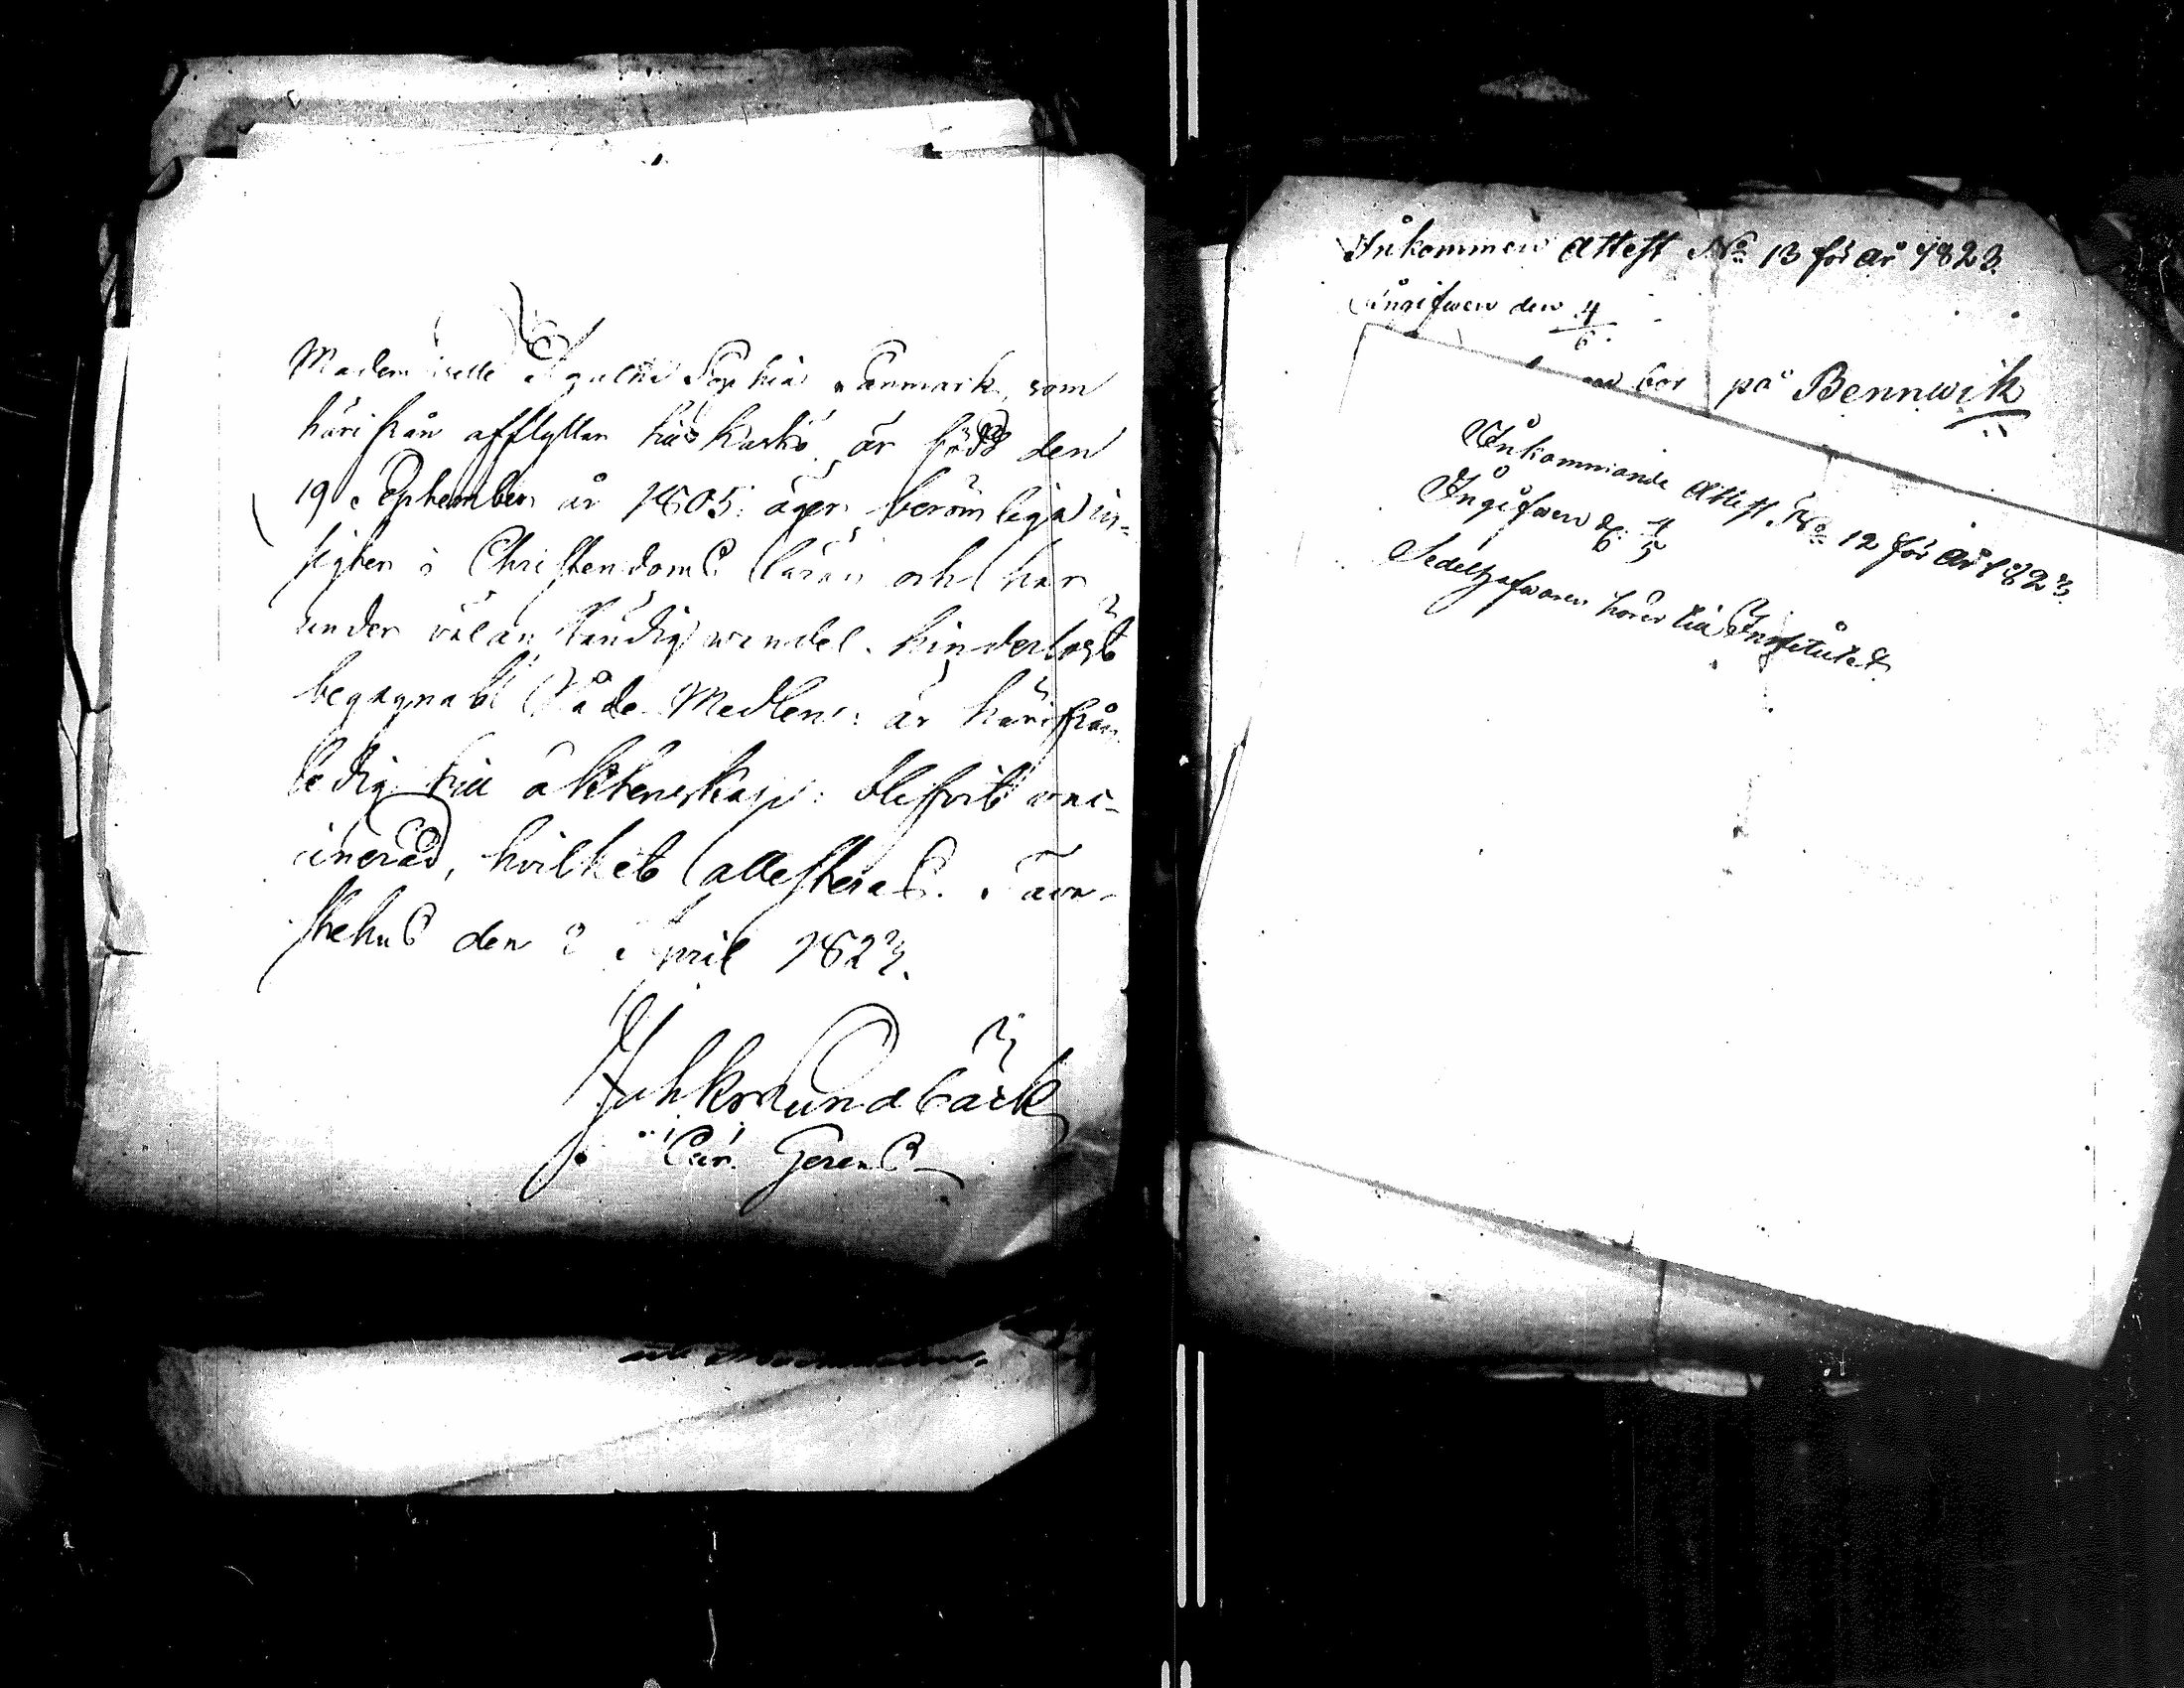 Mademoiselle Agatha Sophia Tanmark, som
härifrån afflyttar till Karkö, är född den
19 September år 1805: äger berömliga in-
sigter i Christendoms läran och har
under välanständig wandel hinderlöst
begagnat Nåde Medlen: är härifrån
ledig till äktenskap: blifvit vac-
cinerad, hvilket attesteras. Tava-
stehus den 2 April 1823.
Joh Lundbäck
Cur. Gerens
Inkommen Attest No 13 för år 1823.
Ingifwen den 4/6.
bor på Bennwik
Inkommande Attest No 12 för år 1823.
Ingifwen d. 4/5
Sedelhafwaren hörer till Institutet.